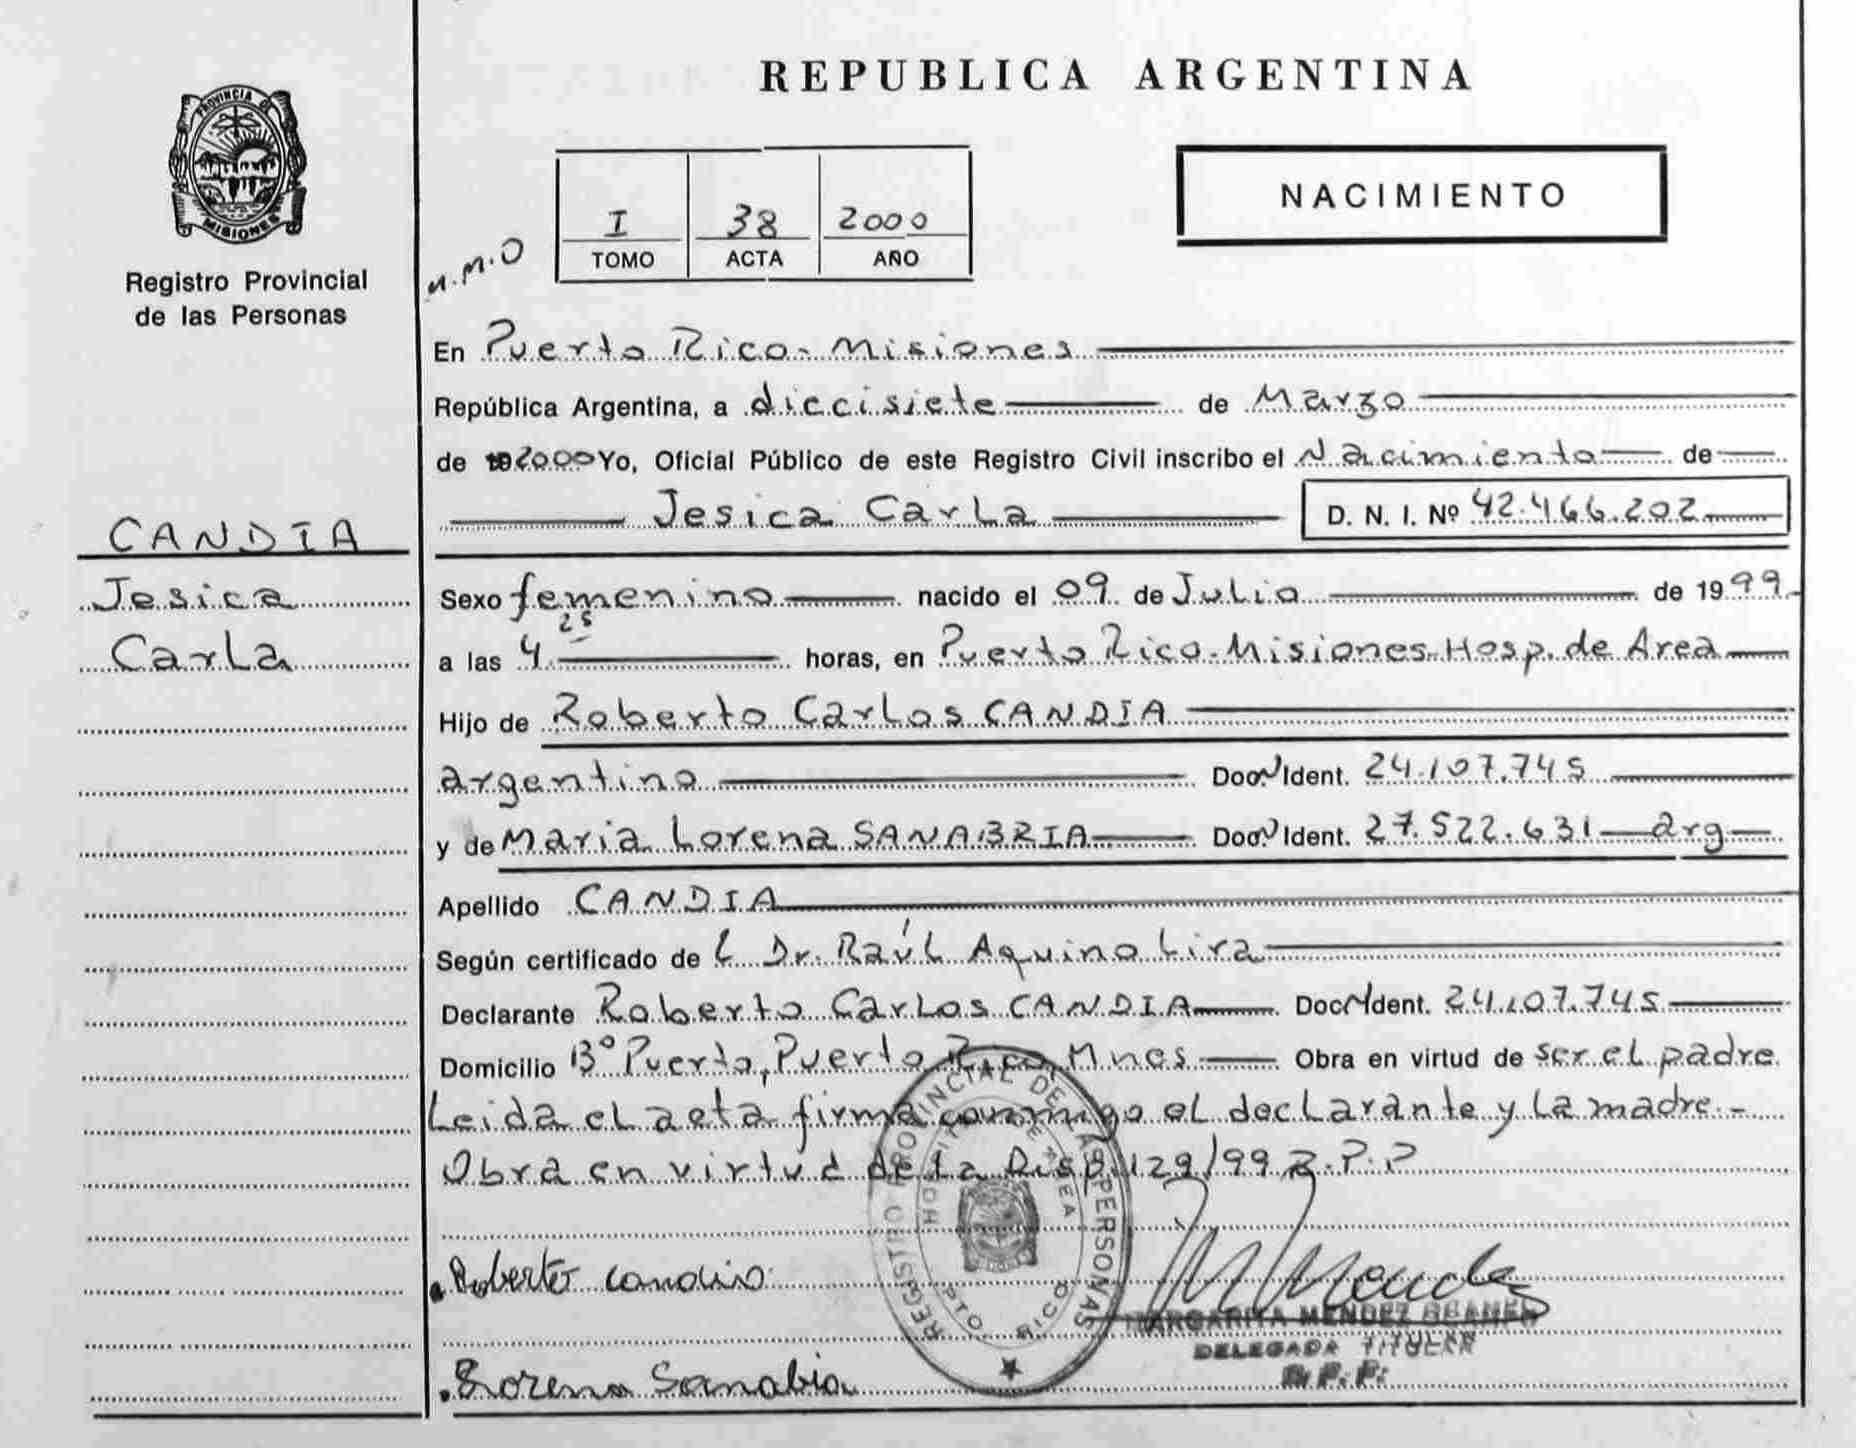 REPUBLICA ARGENTINA
PROVINCIA DE
MISIONES
Registro Provincial
de las Personas
I 38 2000
TOMO ACTA AÑO
NACIMIENTO
M.M.O
En Puerto Rico - Misiones
República Argentina, a diecisiete de Marzo
de 192000 Yo, Oficial Público de este Registro Civil inscribo el Nacimiento de
Jesica Carla D. N. I. Nº 42.466.202
CANDIA
Jesica
Carla
Sexo femenino nacido el 09 de Julio de 1999
a las 4 25 horas, en Puerto Rico - Misiones - Hosp. de Area
Hijo de Roberto Carlos CANDIA
argentino Doc. N Ident. 24.107.745
y de Maria Lorena SANABRIA Doc. N Ident. 27.522.631 — arg
Apellido CANDIA
Según certificado de L Dr. Raúl Aquino Lira
Declarante Roberto Carlos CANDIA Doc. N Ident. 24.107.745
Domicilio Bº Puerto, Puerto Rico, Mnes Obra en virtud de ser el padre
Leida el acta firma conmigo el declarante y la madre -
Obra en virtud de la Disp. 129/99 R.P.P
REGISTRO PROVINCIAL DE LAS PERSONAS
HOSPITAL DE AREA
PTO. RICO
Roberto Candia
MARGARITA MENDEZ
DELEGADA TITULAR
R. P. P.
Lorena Sanabria